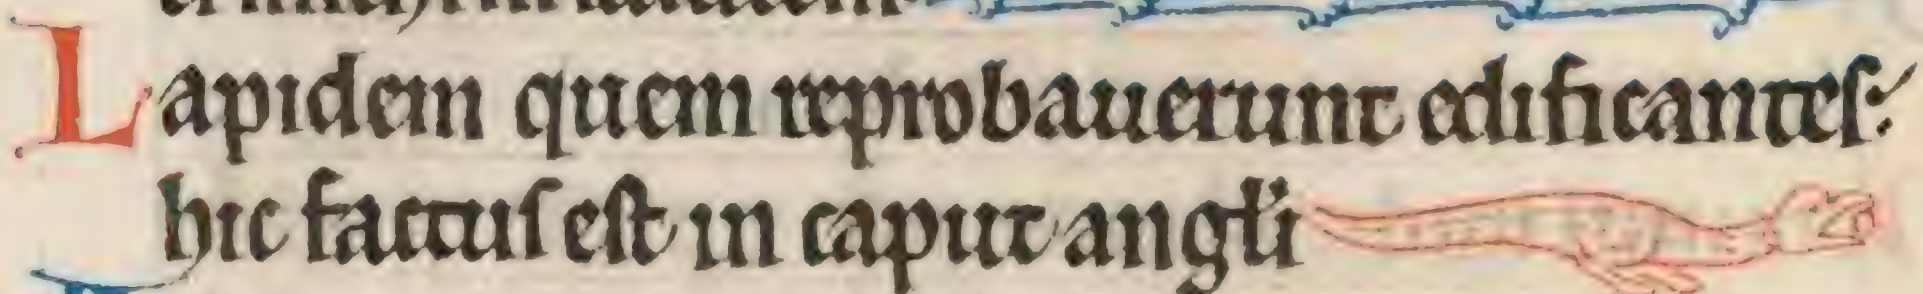 Lapidem quem reprobauerunt edificantes:
hic factus est in caput angli